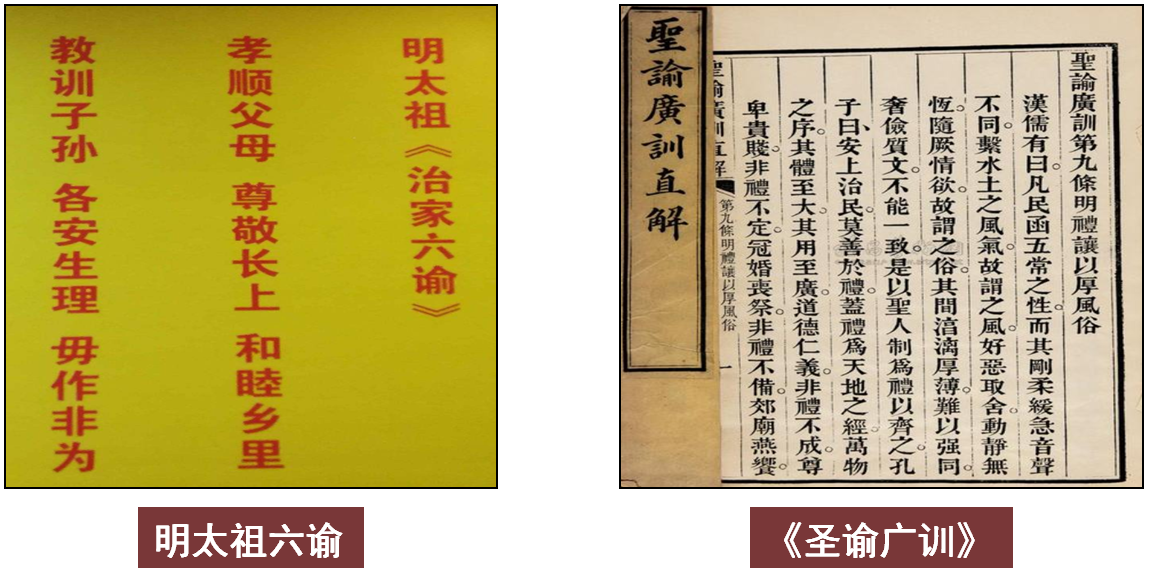 明太祖《治家六谕》
孝顺父母 尊敬长上 和睦乡里
教训子孙 各安生理 毋作非为
明太祖六谕
聖諭廣訓第九條明禮讓以厚風俗
漢儒有曰。凡民函五常之性。而其剛柔緩急音聲
不同。繫水土之風氣。故謂之風。好惡取舍。動靜無
恆。隨厥情欲。故謂之俗。其間湻漓厚薄。難以强同。
奢儉質文。不能一致。是以聖人制爲禮以齊之。孔
子曰、安上治民。莫善於禮。蓋禮爲天地之經。萬物
之序。其體至大。其用至廣。道德仁義。非禮不成。尊
卑貴賤。非禮不定。冠婚喪祭。非禮不備。郊廟燕饗。
第九條明禮讓以厚風俗 一
聖諭廣訓直解
《圣谕广训》